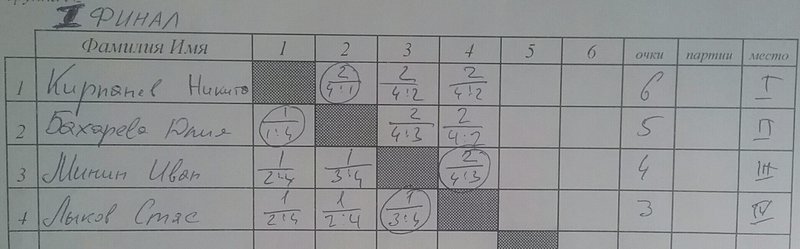 I ФИНАЛ
Фамилия Имя 1 2 3 4 5 6 очки партии место
1 Кирпанев Никита 2 4:1 2 4:2 2 4:2 6 I
2 Бахарева Юлия 1 1:4 2 4:3 2 4:2 5 II
3 Минин Иван 1 2:4 1 3:4 2 4:3 4 III
4 Лыков Стас 1 2:4 1 2:4 1 3:4 3 IV